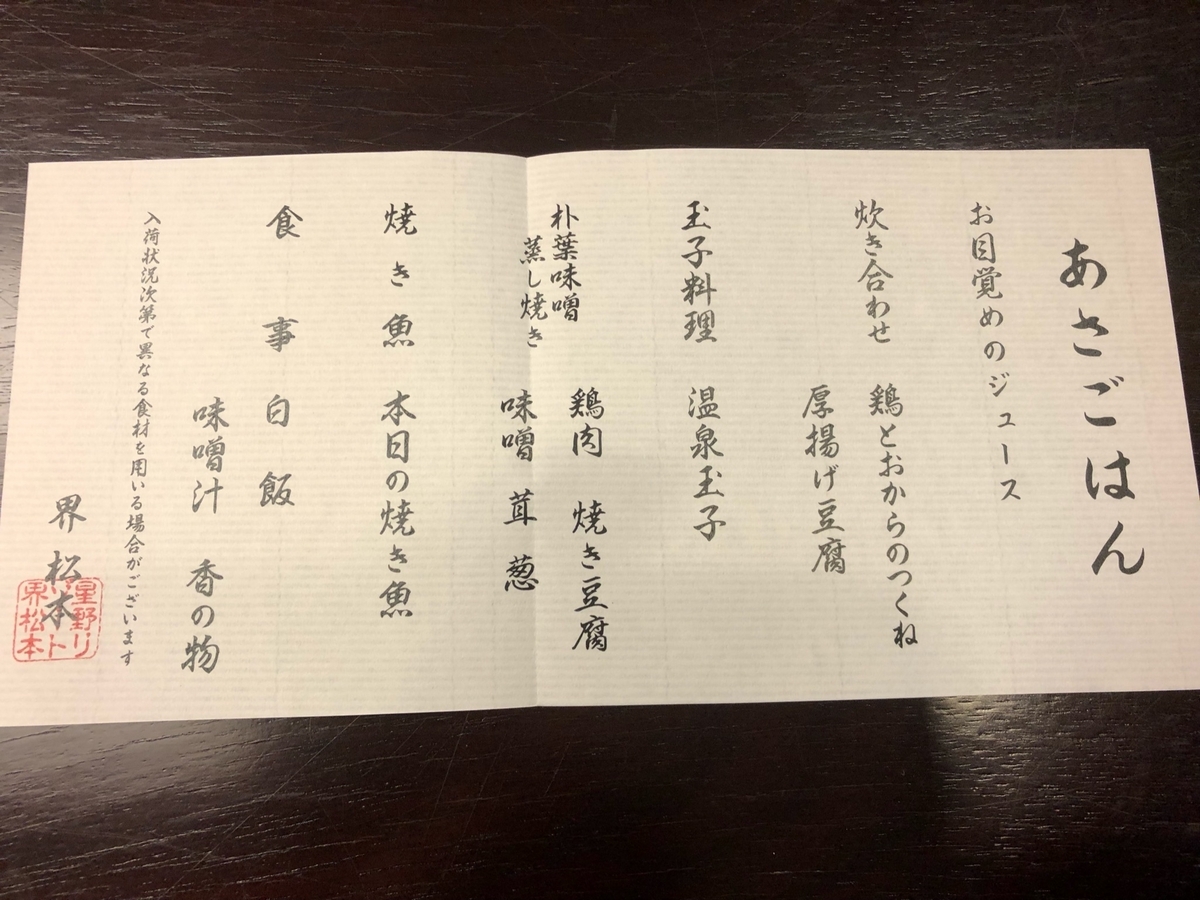 あさごはん
お目覚めのジュース
炊き合わせ 鶏とおからのつくね
厚揚げ豆腐
玉子料理 温泉玉子
朴葉味噌 鶏肉 焼き豆腐
蒸し焼き 味噌 茸 葱
焼き魚 本日の焼き魚
食事 白飯
味噌汁 香の物
入荷状況次第で異なる食材を用いる場合がございます
界 松本
星野リ
ト
界松本